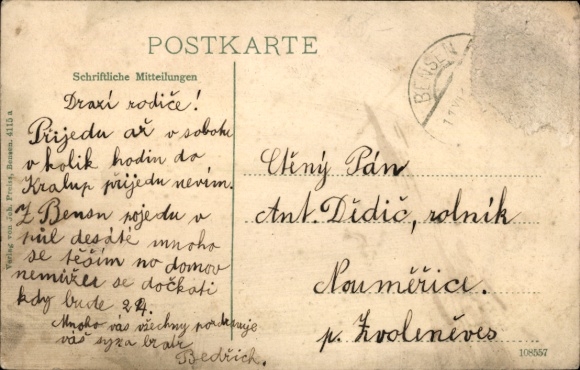 POSTKARTE
Schriftliche Mitteilungen
BENSEN
Drazí rodiče!
Přijedu až v sobotu
v kolik hodin do
Kralup přijedu nevím.
Z Bensn pojedu v
půl desáté mnoho
se těším no domov
nemůžeu se dočkati
kdy bude 24.
Mnoho vás všechny pozdravuje
váš syn a bratr
Bedřich.
Ctěný Pán
Ant. Dědič, rolník
Nouměřice.
p. Zvoleněves
Verlag von Joh. Preisz, Bensen. 4115 a
108557